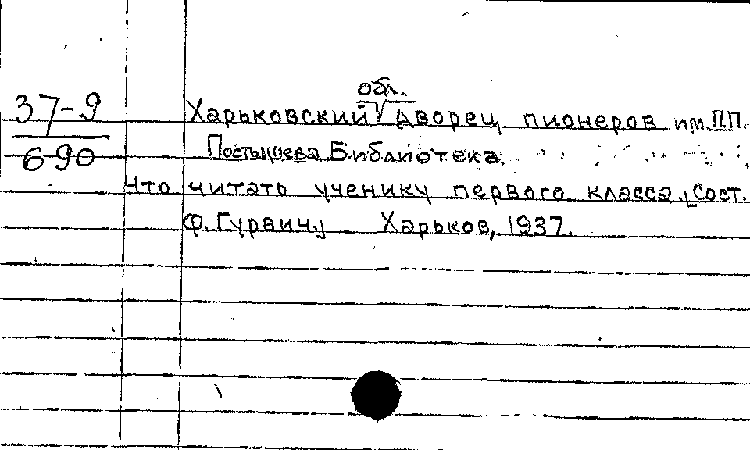 обл.
37-9 Харьковский дворец пионеров им. П.П.
690 Постышева Библиотека.
Что читать ученику первого класса [Сост.
Ф. Гурвич] Харьков, 1937.